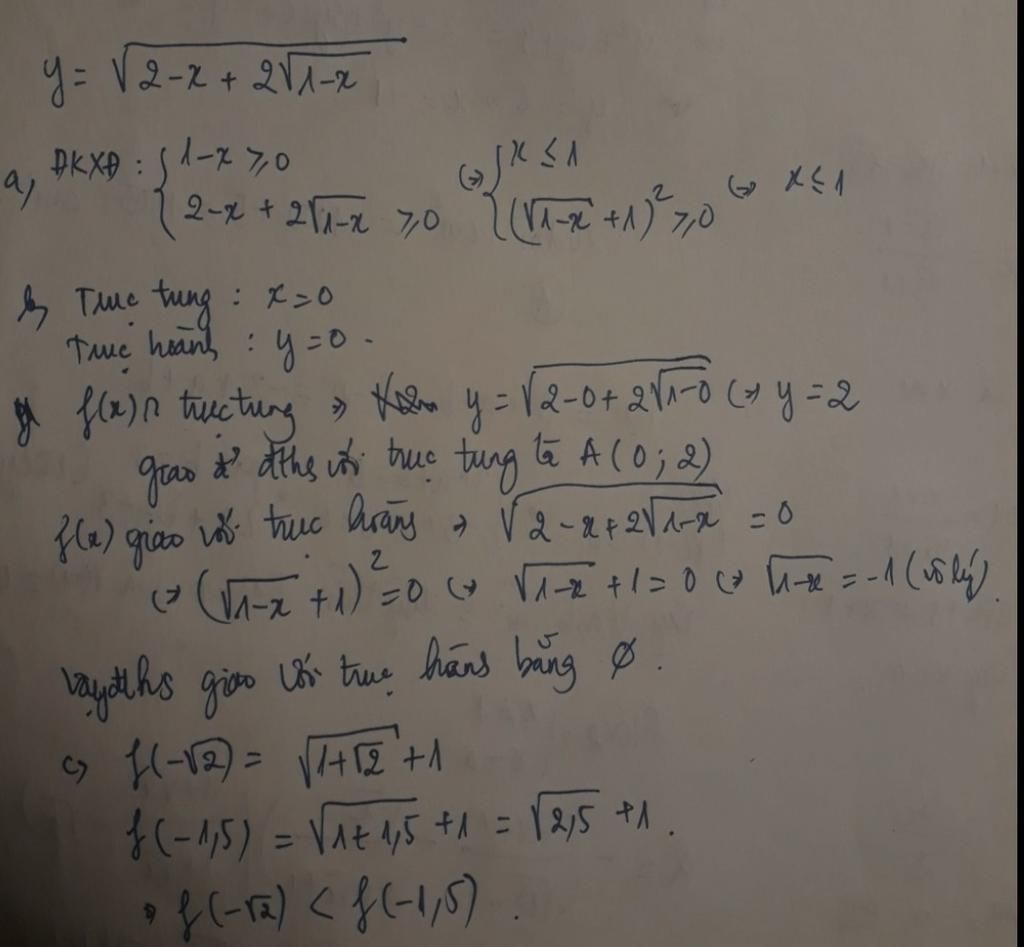 y = √(2-x + 2√(1-x))
a, ĐKXĐ : { 1-x ≥ 0 ; 2-x + 2√(1-x) ≥ 0 (=) { x ≤ 1 ; (√(1-x) + 1)² ≥ 0 (=) x ≤ 1
b, Trục tung : x = 0
Trục hoành : y = 0.
f(x) ∩ trục tung => y = √(2-0+2√(1-0)) (=) y = 2
giao đths với trục tung là A(0;2)
f(x) giao với trục hoành => √(2-x+2√(1-x)) = 0
(=) (√(1-x) + 1)² = 0 (=) √(1-x) + 1 = 0 (=) √(1-x) = -1 (vô lý).
Vậy đths giao với trục hoành bằng ∅.
c, f(-√2) = √(1+√2) + 1
f(-1,5) = √(1+1,5) + 1 = √2,5 + 1.
=> f(-√2) < f(-1,5).